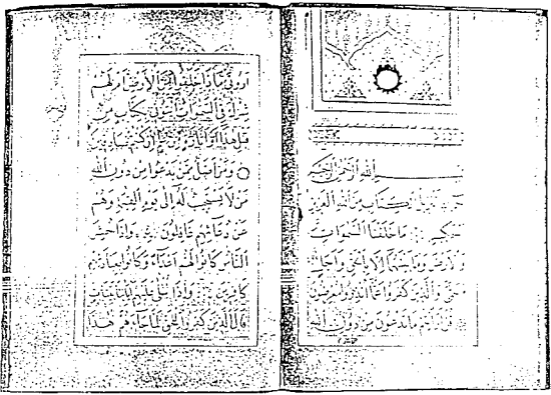 بسم الله الرحمن الرحيم
حم تنزيل الكتاب من الله العزيز
الحكيم ما خلقنا السموات
والارض وما بينهما الا بالحق واجل
مسمى والذين كفروا عما انذروا معرضون
قل ارايتم ما تدعون من دون الله
اروني ماذا خلقوا من الارض ام لهم
شرك في السموات ائتوني بكتاب من
قبل هذا او اثارة من علم ان كنتم صادقين
ومن اضل ممن يدعوا من دون الله
من لا يستجيب له الى يوم القيمة وهم
عن دعائهم غافلون واذا حشر
الناس كانوا لهم اعداء وكانوا بعبادتهم
كافرين واذا تتلى عليهم اياتنا بينات
قال الذين كفروا للحق لما جاءهم هذا